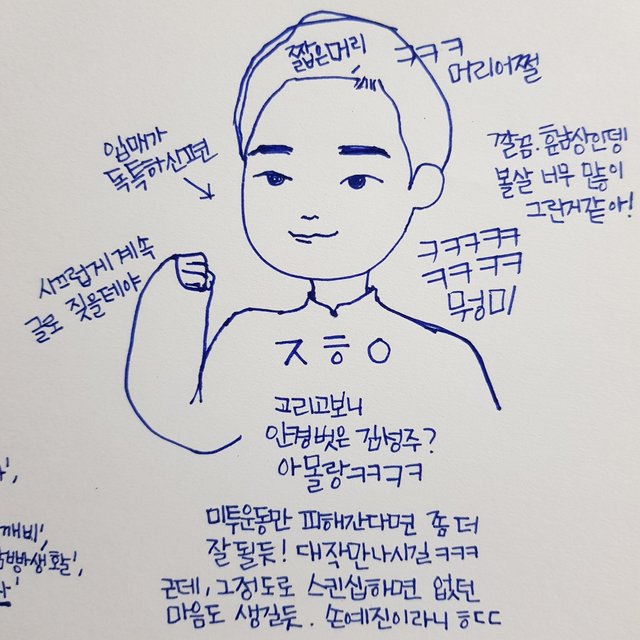 짧은머리
ㅋㅋㅋ
머리어쩔
입매가
독특하신편
깔끔.훈남상인뎅
볼살 너무 많이
그린거같아!
시끄럽게 계속
글로 짖을테야
ㅋㅋㅋㅋㅋ
ㅋㅋㅋㅋ
뭐헝미
ㅈㅎㅇ
그리고보니
안경벗은 김성주?
아몰랑ㅋㅋㅋㅋ
미투운동만 피해간다면 좀 더
잘될듯! 대작만나시길ㅋㅋㅋ
근데, 그정도로 스킨십하면 없던
마음도 생길듯. 손예진이라니 ㅎㄷㄷ
깨비',
빵생활',